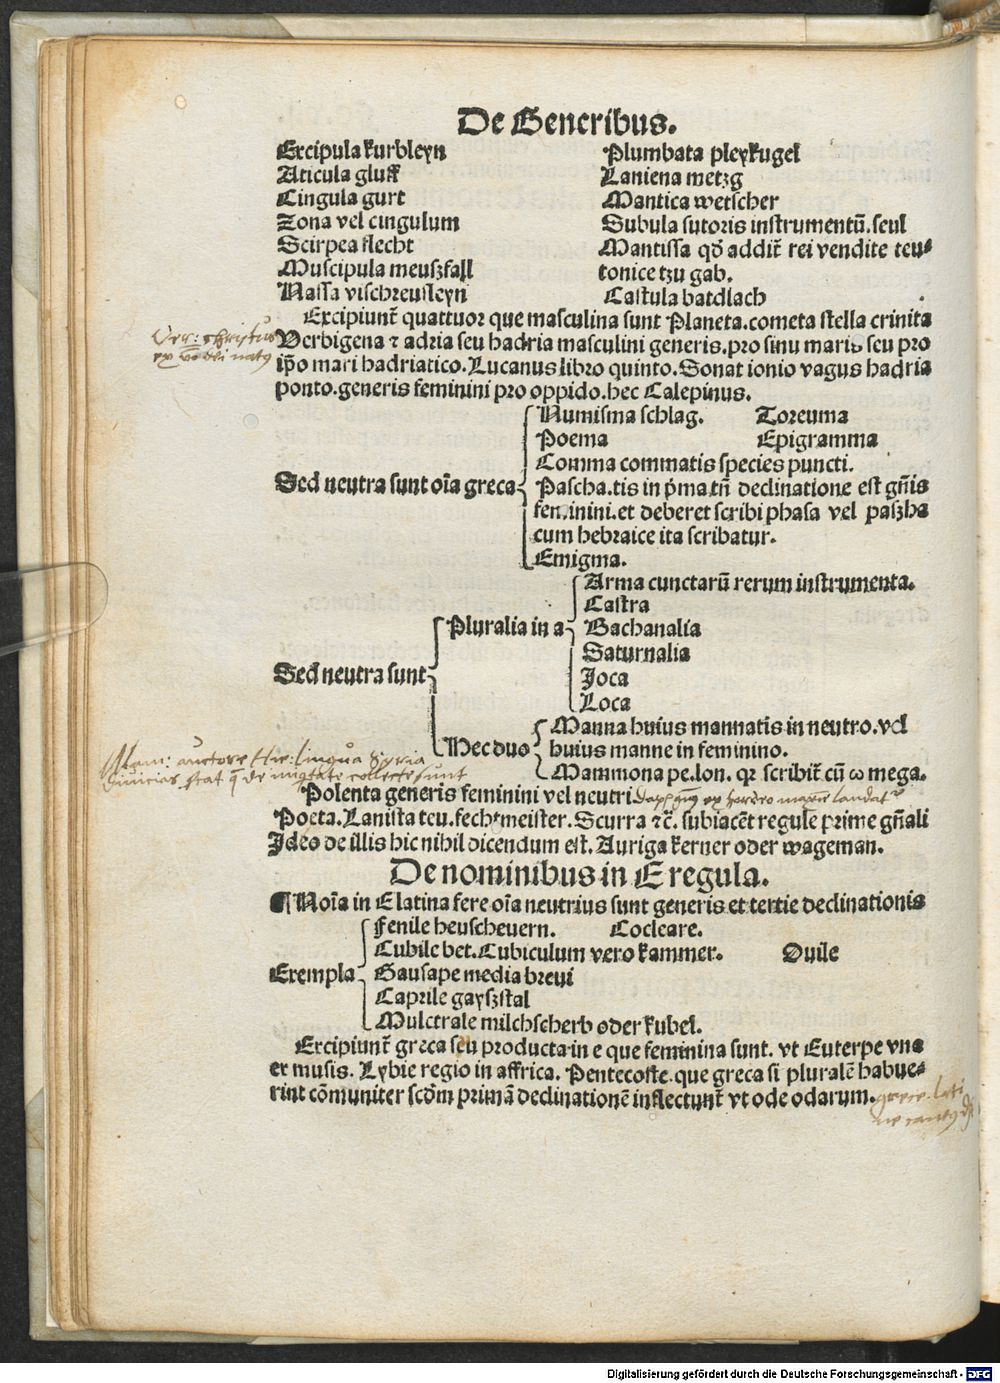 De Generibus.
Excipula kurbleyn
Aticula gluff
Cingula gurt
Zona vel cingulum
Scirpea flecht
Muscipula meuszfall
Nassa vischreusleyn
Plumbata pleykugel
Laniena metzg
Mantica wetscher
Subula sutoris instrumentū.seul
Mantissa qđ addit̄ rei vendite teu⸗
tonice tzu gab.
Castula batdlach
Excipiunt̄ quattuor que masculina sunt Planeta.cometa stella crinita
Verbigena ⁊ adria seu hadria masculini generis.pro sinu maris seu pro
ip̄o mari hadriatico.Lucanus libro quinto.Sonat ionio vagus hadria
ponto.generis feminini pro oppido.hec Calepinus.
Ver: christus
ex natus
Sed neutra sunt oīa greca
Numisma schlag. Toreuma
Poema Epigramma
Comma commatis species puncti.
Pascha.tis in p̄ma.tn̄ declinatione est gn̄is
feminini.et deberet scribi phasa vel paszha
cum hebraice ita scribatur.
Emigma.
Sed neutra sunt
Pluralia in a
Arma cunctarū rerum instrumenta.
Castra
Bachanalia
Saturnalia
Joca
Loca
Hec duo
Manna huius mannatis in neutro.vel
huius manne in feminino.
Mammona pe.lon. qr scribit̄ cū ω mega.
Mam: auctore Hie: lingua Syria
divicias de collecte sunt
Polenta generis feminini vel neutri. ex hordeo
Poeta.Lanista teu.fechtmeister.Scurra ⁊c̄. subiacēt regule prime gn̄ali
Ideo de illis hic nihil dicendum est. Auriga kerner oder wageman.
De nominibus in E regula.
¶ Noīa in E latina fere oīa neutrius sunt generis et tertie declinationis
Exempla
Fenile heuscheuern. Cocleare.
Cubile bet.Cubiculum vero kammer. Ouile
Gausape media breui
Caprile gayszstal
Mulctrale milchscherb oder kubel.
Excipiunt̄ greca seu producta in e que feminina sunt. vt Euterpe vna
ex musis. Lybie regio in affrica. Pentecoste.que greca si pluralē habue⸗
rint cōmuniter scđm primā declinationē inflectunt̄ vt ode odarum.
grece. lati
ne
Digitalisierung gefördert durch die Deutsche Forschungsgemeinschaft - DFG